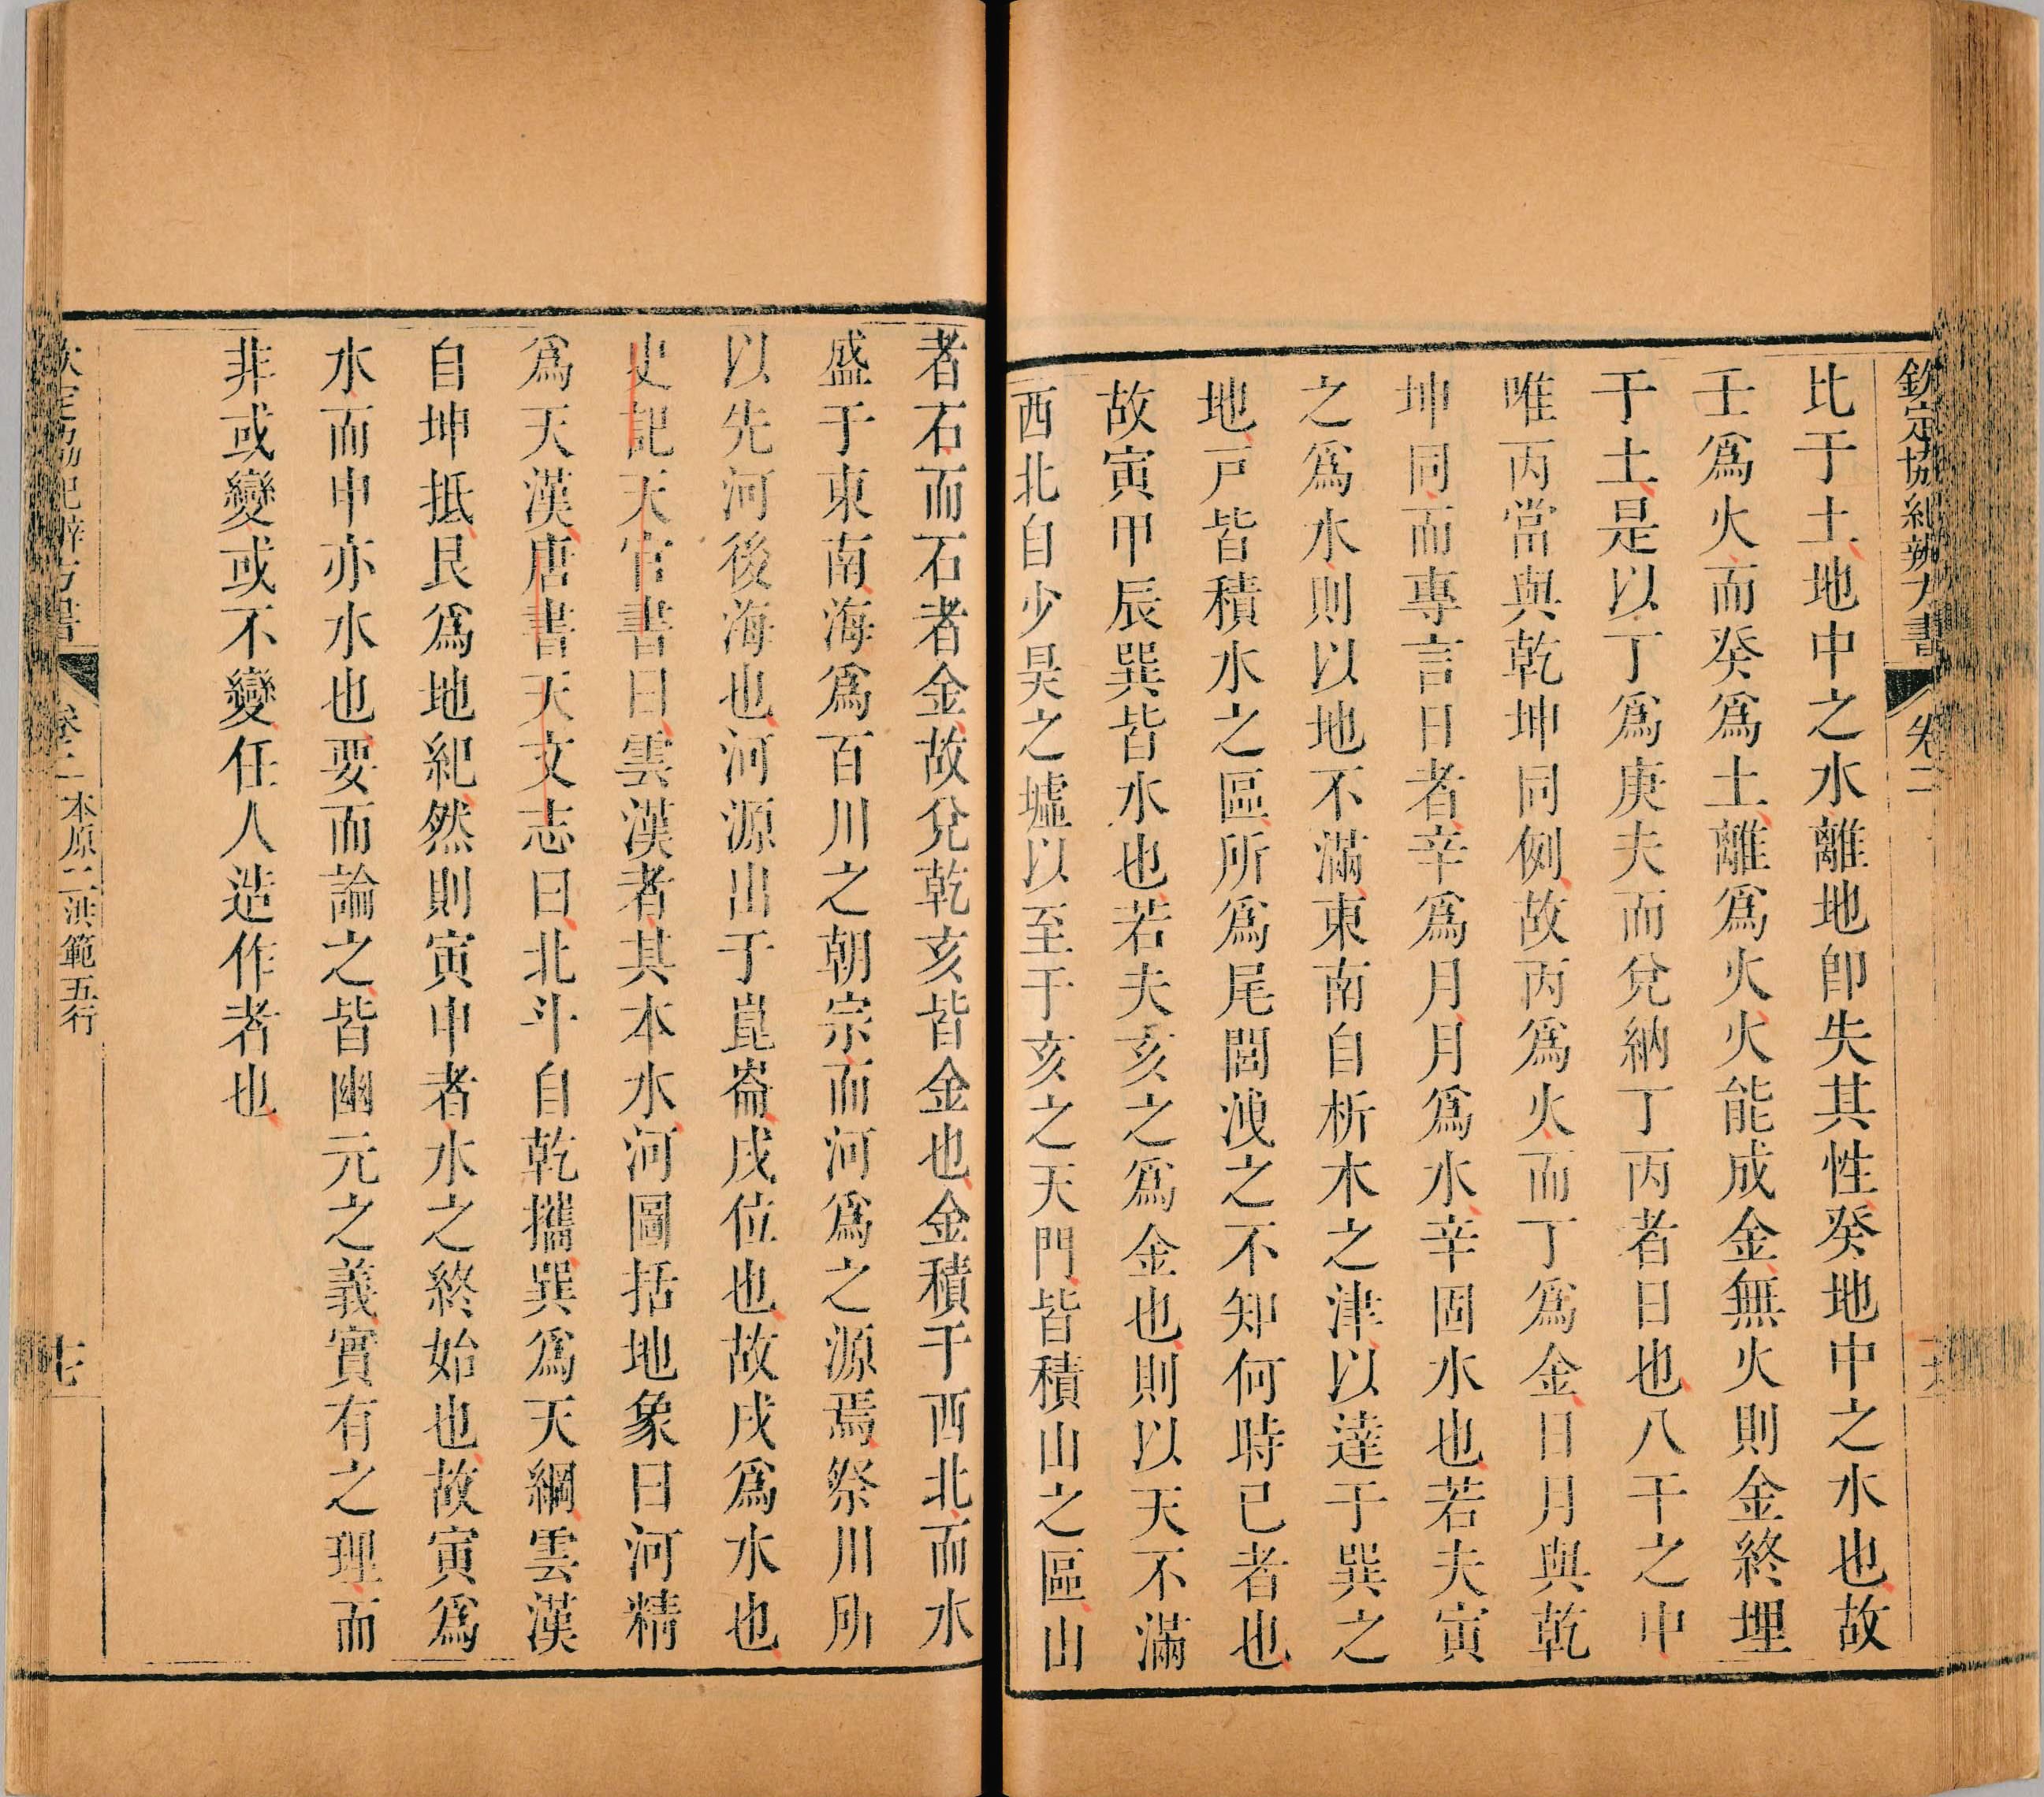 欽定協紀辨方書 卷二
比于土地中之水離地卽失其性癸地中之水也故
壬爲火而癸爲土離爲火火能成金無火則金終埋
于土是以丁爲庚夫而兌納丁丙者日也八干之中
唯丙當與乾坤同例故丙爲火而丁爲金日月與乾
坤同而專言日者辛爲月月爲水辛固水也若夫寅
之爲水則以地不滿東南自析木之津以達于巽之
地戸皆積水之區所爲尾閭洩之不知何時已者也
故寅甲辰巽皆水也若夫亥之爲金也則以天不滿
西北自少昊之墟以至于亥之天門皆積山之區山
者石而石者金故兌乾亥皆金也金積于西北而水
盛于東南海爲百川之朝宗而河爲之源焉祭川所
以先河後海也河源出于崑崙戌位也故戌爲水也
史記天官書曰雲漢者其本水河圖括地象曰河精
爲天漢唐書天文志曰北斗自乾攜巽爲天綱雲漢
自坤抵艮爲地紀然則寅申者水之終始也故寅爲
水而申亦水也要而論之皆幽元之義實有之理而
非或變或不變任人造作者也
欽定協紀辨方書 卷二 本原二 洪範五行 七